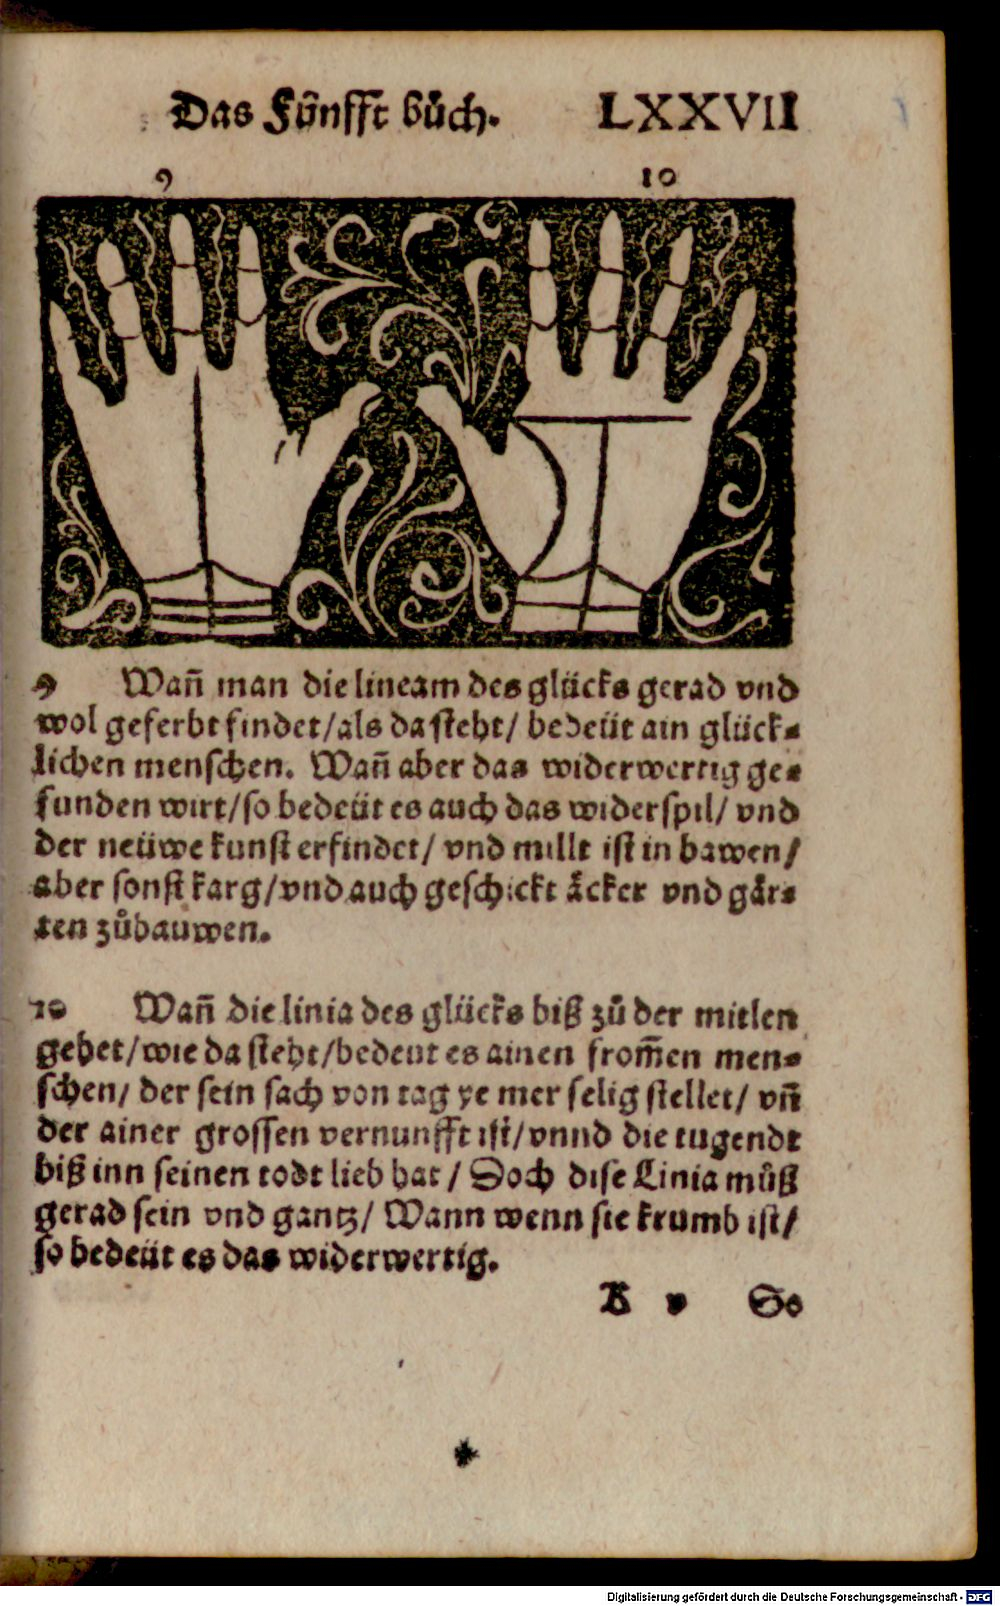 Das Fünfft bůch. LXXVII
9 10
9 Wañ man die lineam des glücks gerad vnd
wol geferbt findet/als da steht/ bedeüt ain glück-
lichen menschen. Wañ aber das widerwertig ge-
funden wirt/so bedeüt es auch das widerspil/ vnd
der neüwe kunst erfindet/ vnd millt ist in bawen/
aber sonst karg/vnd auch geschickt äcker vnd gär-
ten zůbauwen.
10 Wañ die linia des glücks biß zů der mitlen
gehet/wie da steht/bedeut es ainen from̃en men-
schen/ der sein sach von tag ye mer selig stellet/ vñ
der ainer grossen vernunfft ist/vnnd die tugendt
biß inn seinen todt lieb hat/ Doch dise Linia můß
gerad sein vnd gantz/ Wann wenn sie krumb ist/
so bedeüt es das widerwertig.
K v So
Digitalisierung gefördert durch die Deutsche Forschungsgemeinschaft - DFG